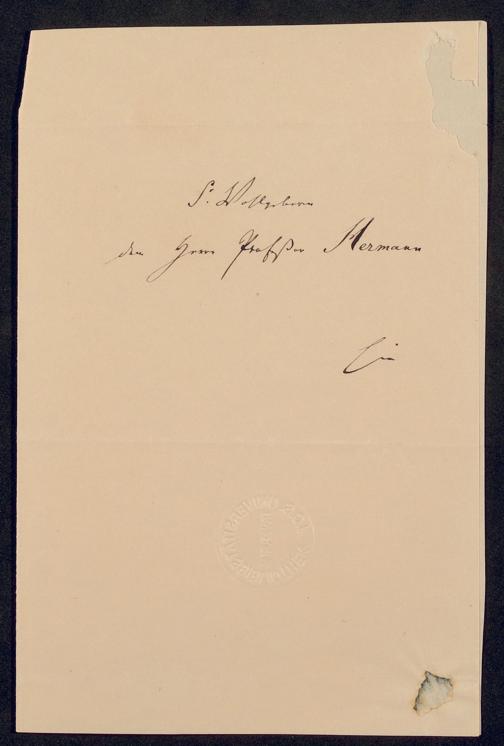 Sr Wohlgeborn
dem Herrn Professor Hermann